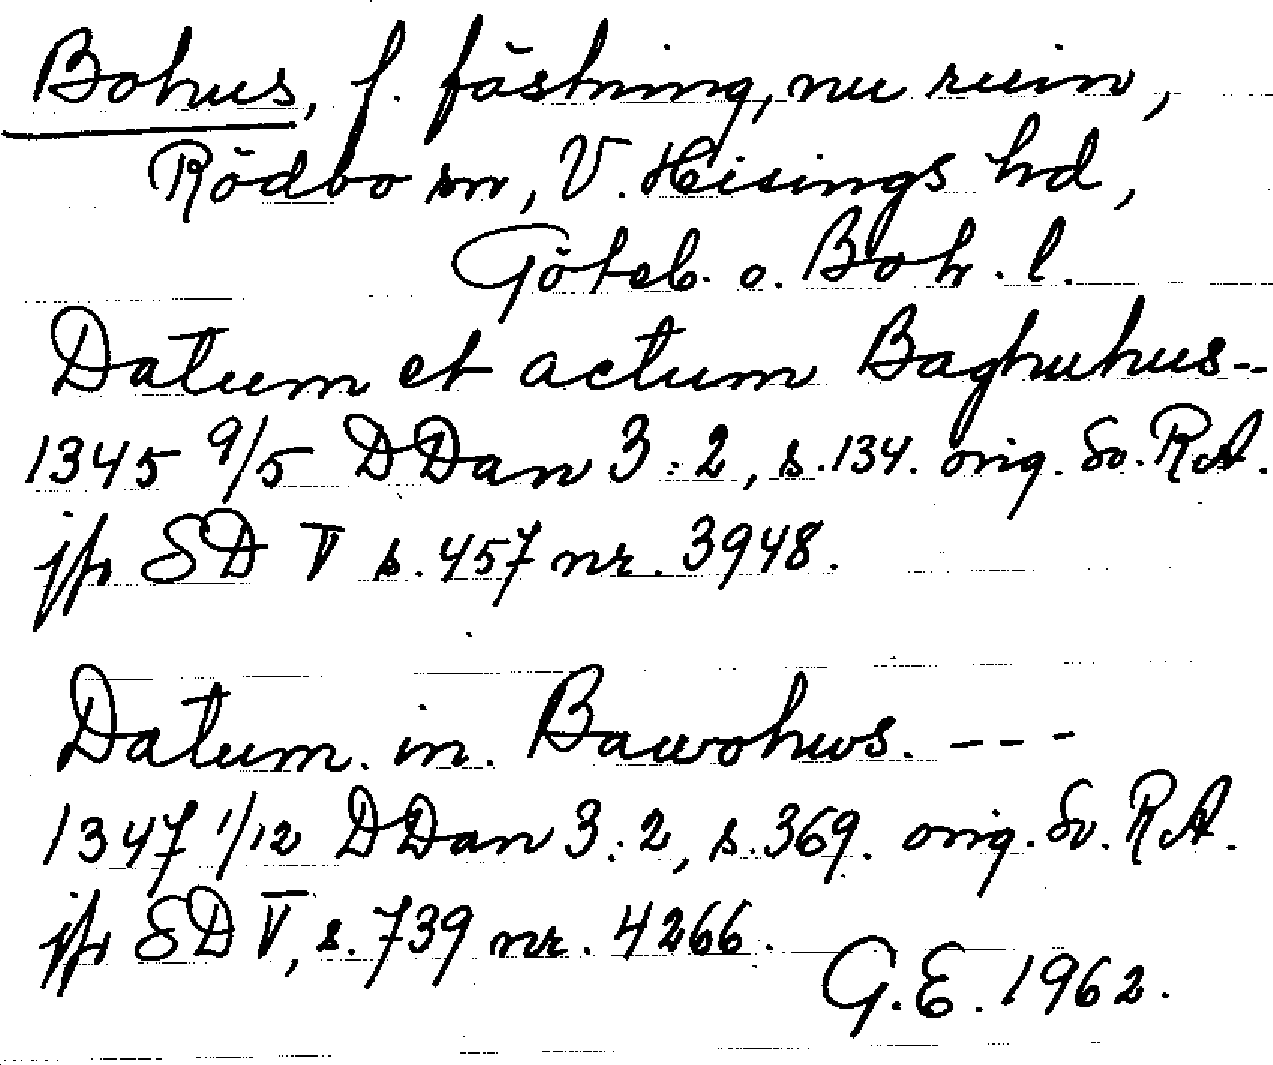 Bohus, f. fästning, nu ruin,
Rödbo sn, V. Hisings hd,
Göteb. o. Boh. l.
Datum et actum Baghuhus --
1345 9/5 DDan 3:2, s. 134. orig. Sv. RA.
jfr SD V s. 457 nr. 3948.
Datum. in. Bawohws. ---
1347 1/12 DDan 3:2, s. 369. orig. Sv. RA.
jfr SD V, s. 739 nr. 4266.
G. E. 1962.